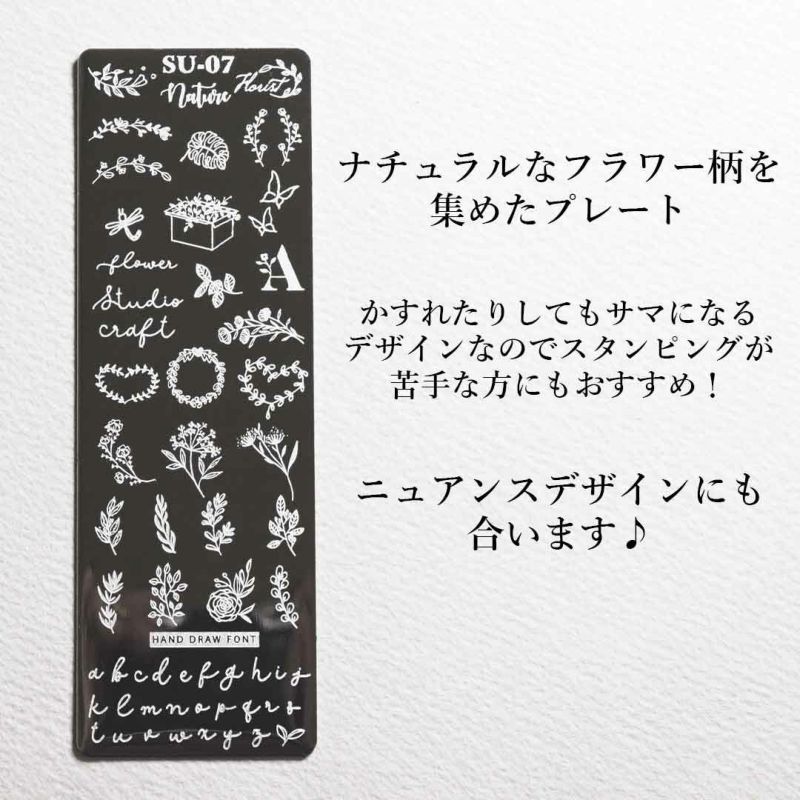 SU-07
Nature
Florist
flower
A
Studio
craft
HAND DRAW FONT
a b c d e f g h i j
k l m n o p q r s
t u v w x y z
ナチュラルなフラワー柄を
集めたプレート
かすれたりしてもサマになる
デザインなのでスタンピングが
苦手な方にもおすすめ！
ニュアンスデザインにも
合います♪